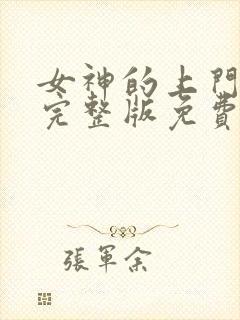 女神的上門
完整版免費
張軍余